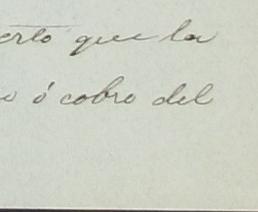 erto que la
ó cobro del